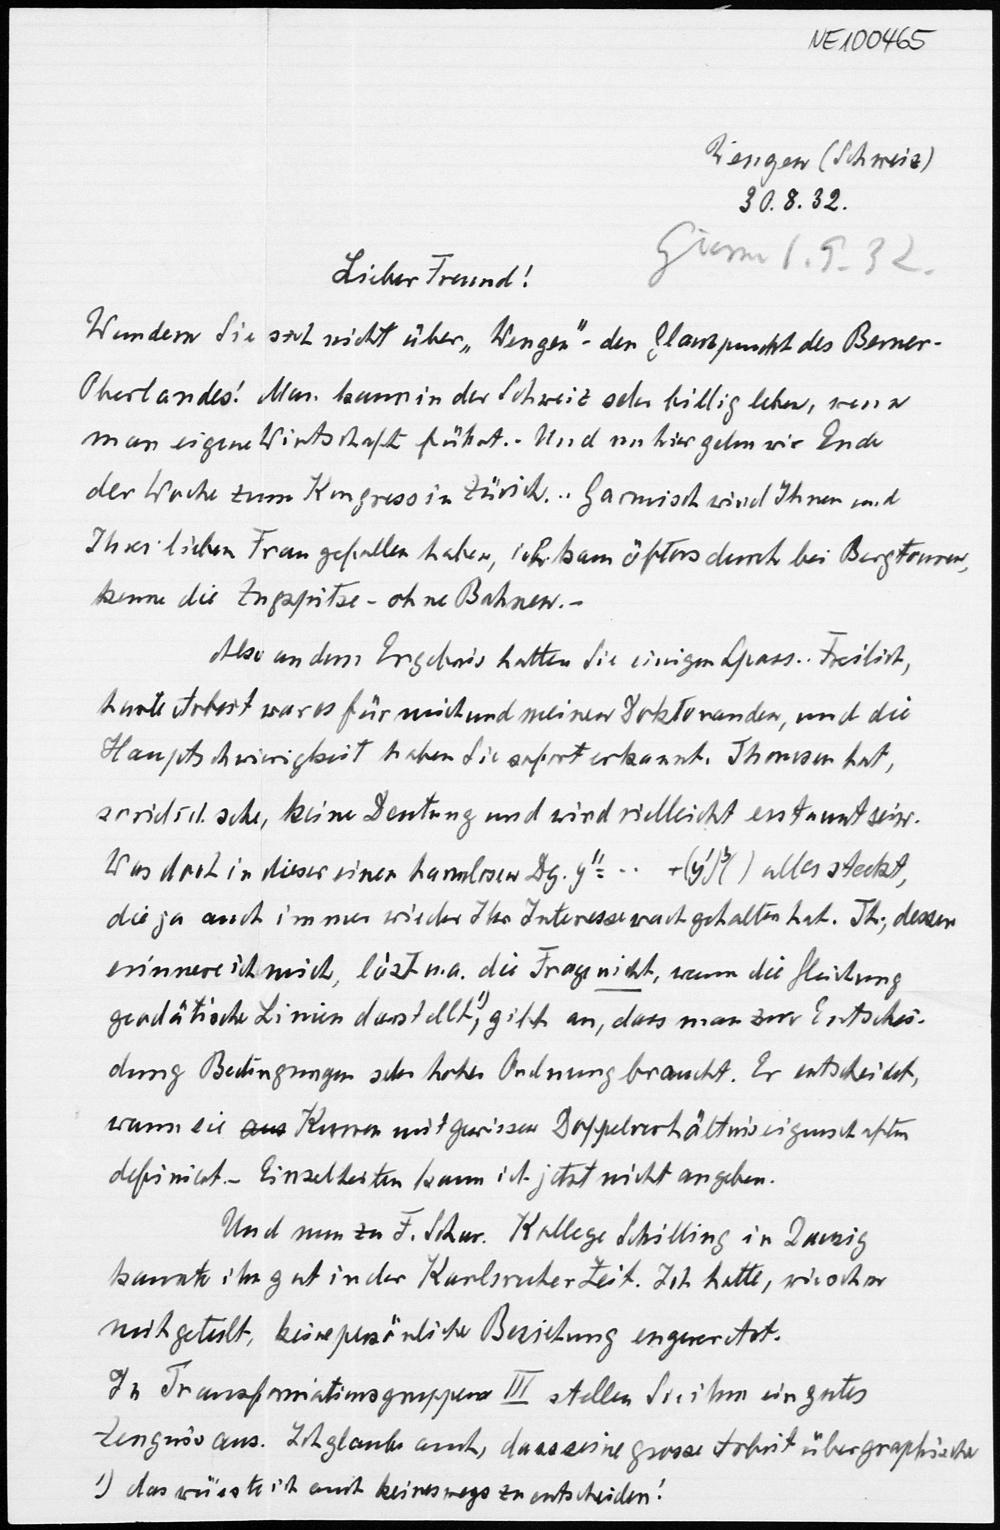 NE100465
Wengen (Schweiz)
30.8.32.
1.9.32.
Lieber Freund!
Wundern Sie sich nicht über „Wengen" - den Glanzpunkt des Berner-
Oberlandes! Man kann in der Schweiz sehr billig leben, wenn
man eigene Wirtschaft führt. - Und von hier gehen wir Ende
der Woche zum Kongress in Zürich. .. Garmisch wird Ihnen und
Ihrer lieben Frau gefallen haben, ich kam öfters durch bei Bergtouren,
kenne die Zugspitze - ohne Bahnen. -
Also an dem Ergebnis hatten Sie einigen Spass.. Freilich,
harte Arbeit war es für mich und meinen Doktoranden, und die
Hauptschwierigkeit haben Sie sofort erkannt. Thomsen hat,
soviel ich sehe, keine Deutung und wird vielleicht erstaunt sein.
Was doch in dieser einen harmlosen Dg. y'' = .. +(y')³( ) alles steckt,
die ja auch immer wieder Ihr Interesse wach gehalten hat. Th., dessen
erinnere ich mich, löst u.a. die Frage nicht, wann die Gleichung
geodätische Linien darstellt¹), gibt an, dass man zur Entschei-
dung Bedingungen sehr hoher Ordnung braucht. Er entscheidet,
wann sie aus Kurven mit gewissen Doppelverhältniseigenschaften
definiert. - Einzelheiten kann ich jetzt nicht angeben.
Und nun zu F. Schur. Kollege Schilling in Danzig
kannte ihn gut in der Karlsruher Zeit. Ich hatte, wie schon
mitgeteilt, keine persönliche Beziehung
In Transformationsgruppen III stellen Sie ihm ein gutes
Zeugnis aus. Ich glaube auch, dass seine grosse Arbeit über graphische
¹) das wüsste ich auch keineswegs zu entscheiden!